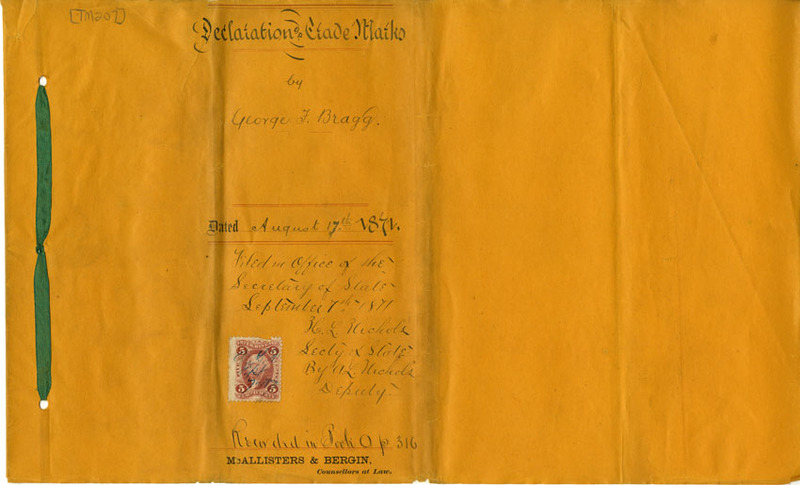 [TM207]
Declaration of Trade Marks
by
George F. Bragg.
Dated August 17th 1871.
Filed in Office of the
Secretary of State
September 7th 1871
H. L. Nichols
Secty of State
By A L Nichols
Deputy
5 5
5 5
Recorded in Book O p 316
McALLISTERS & BERGIN,
Counsellors at Law.